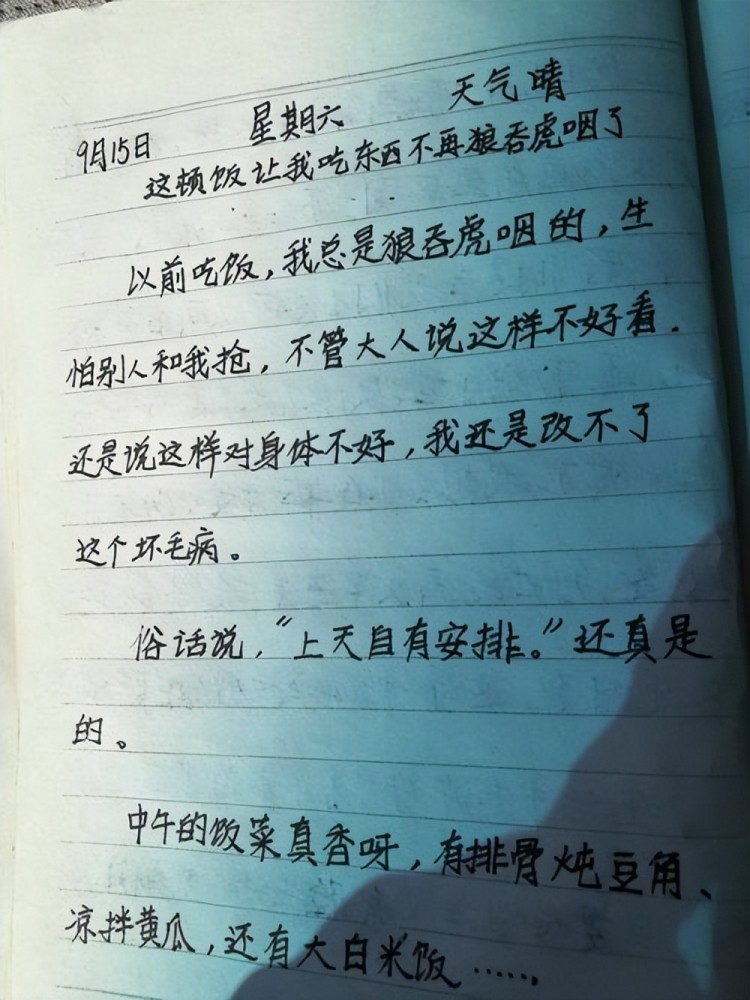 9月15日 星期六 天气晴
这顿饭让我吃东西不再狼吞虎咽了
以前吃饭，我总是狼吞虎咽的，生
怕别人和我抢，不管大人说这样不好看.
还是说这样对身体不好，我还是改不了
这个坏毛病。
俗话说，“上天自有安排。”还真是
的。
中午的饭菜真香呀，有排骨炖豆角、
凉拌黄瓜，还有大白米饭……，